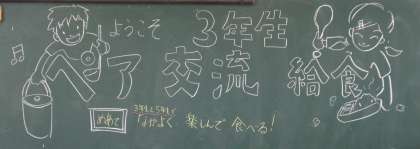 ようこそ 3年生
ペア交流給食
めあて 3年生と5年生で
「なかよく 楽しんで 食べる!」